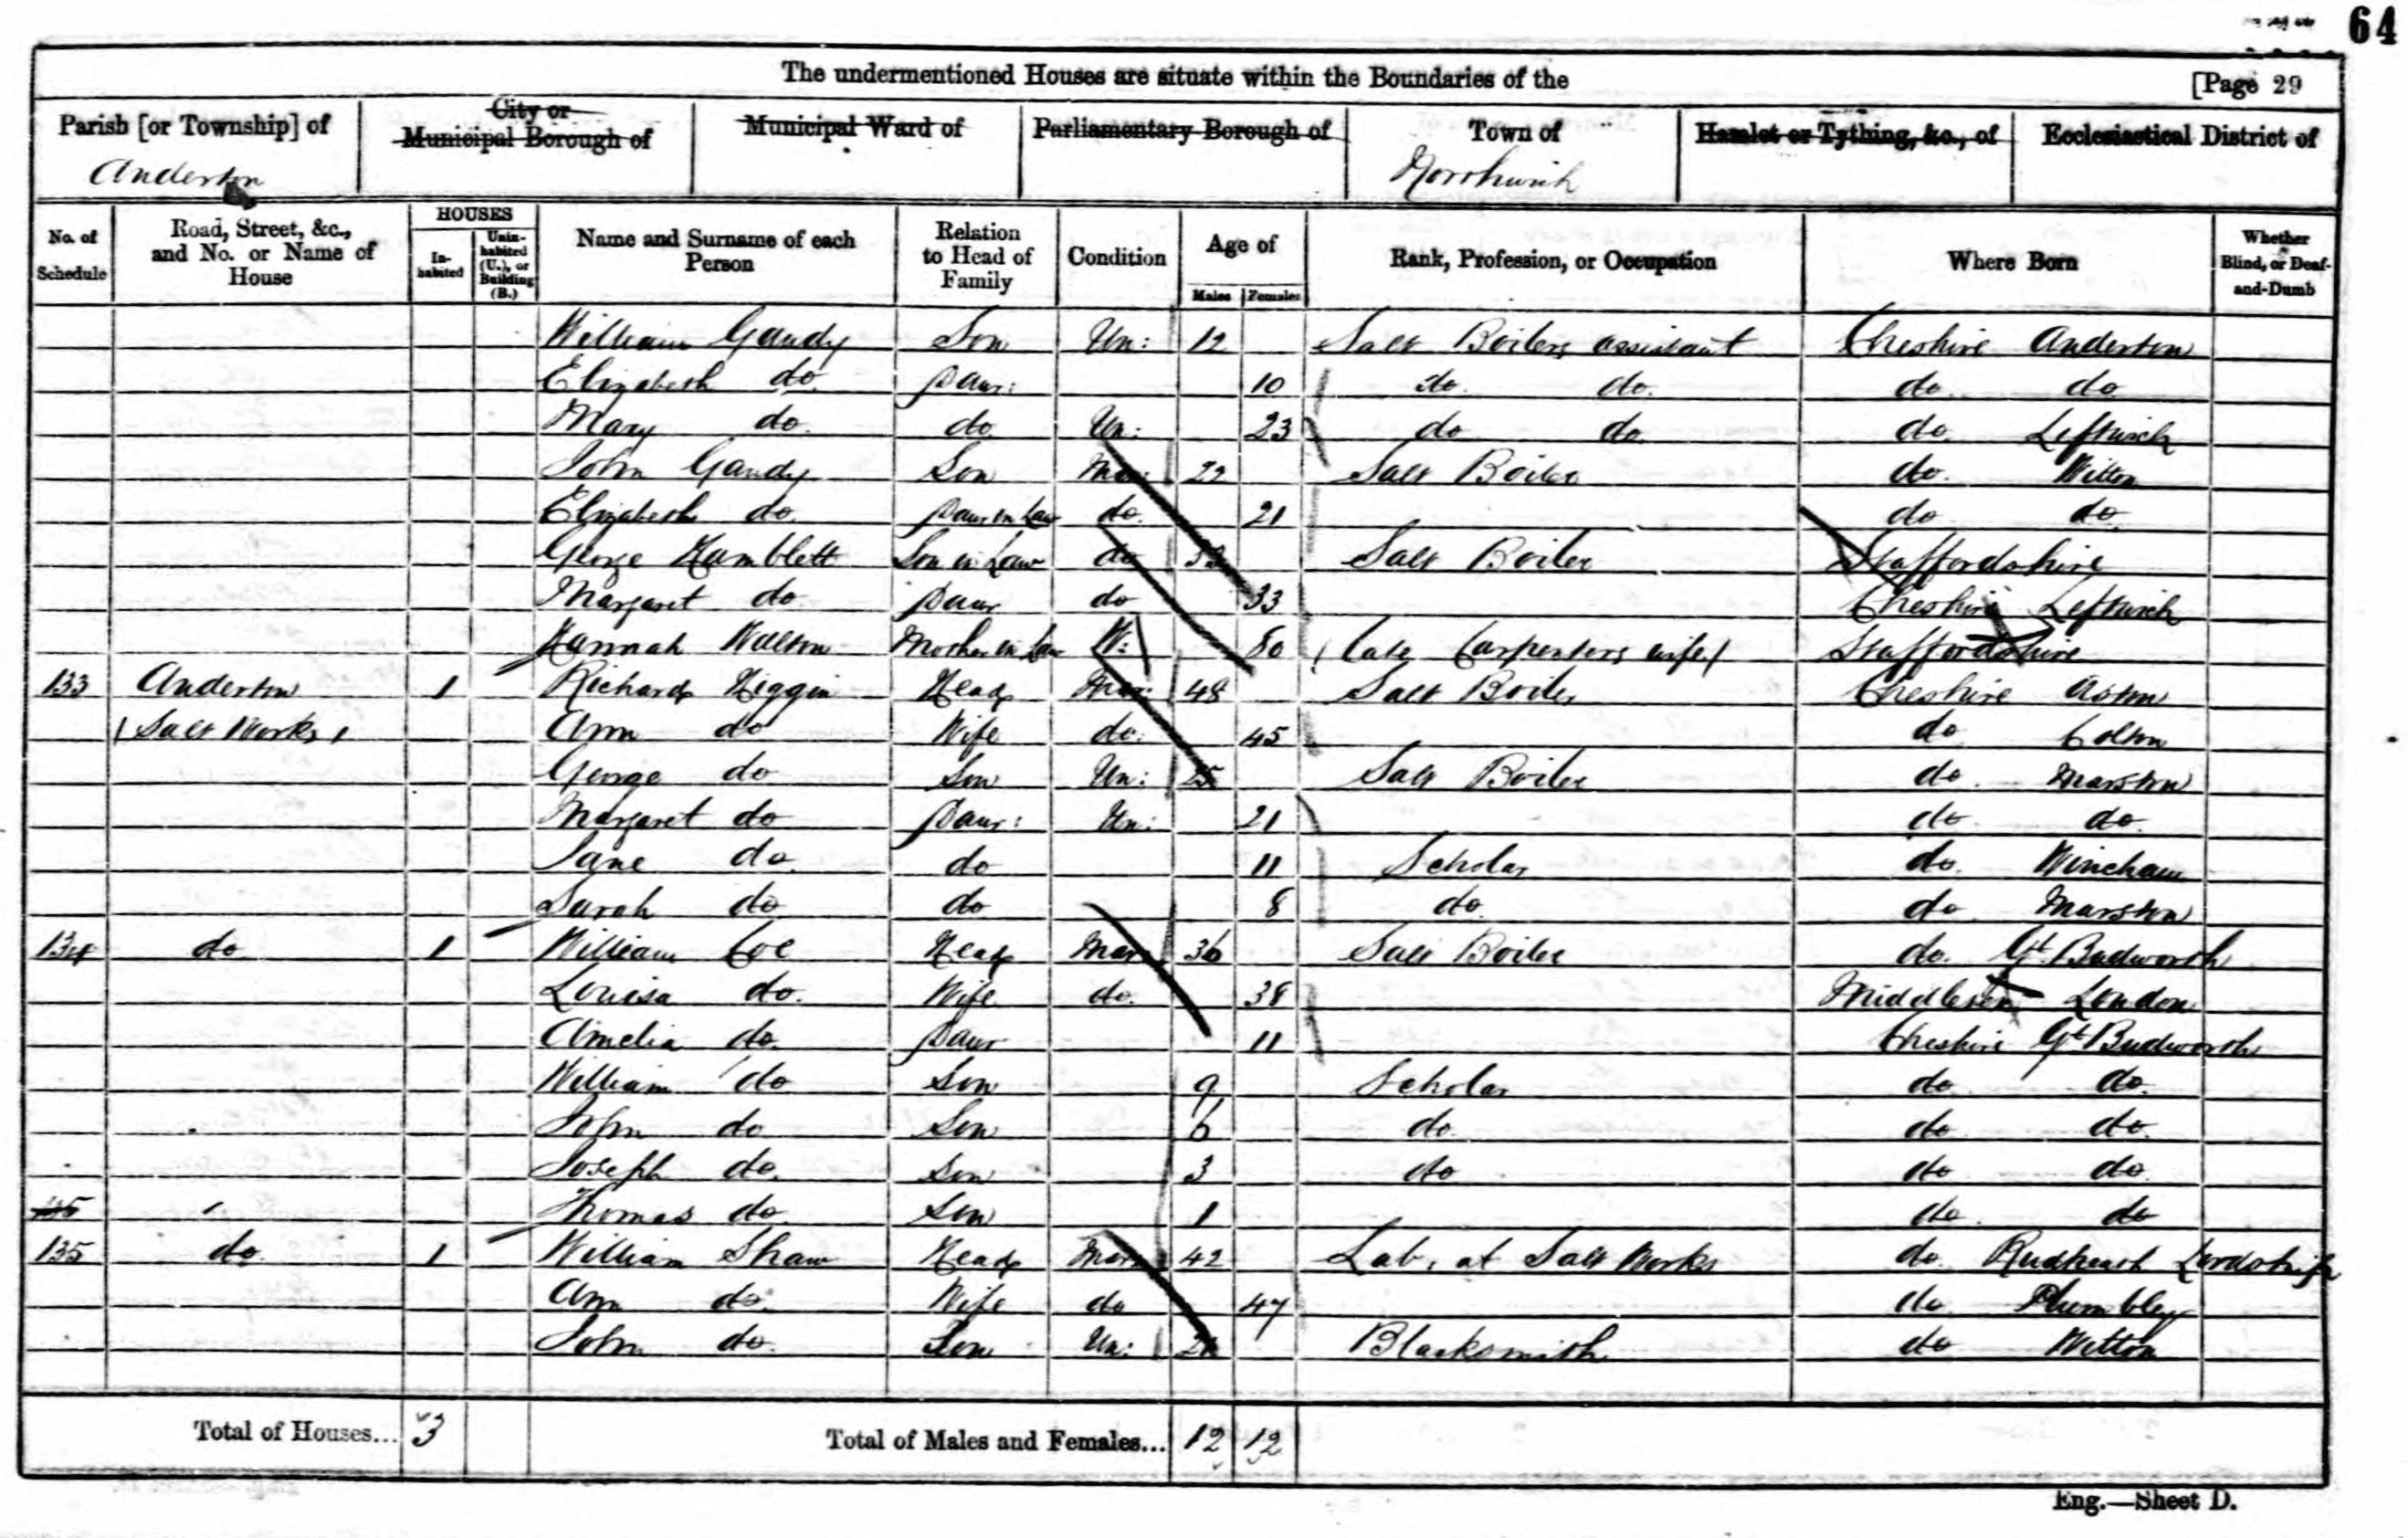 64
The undermentioned Houses are situate within the Boundaries of the [Page 29
Parish [or Township] of City or Municipal Borough of Municipal Ward of Parliamentary Borough of Town of Hamlet or Tything, &c., of Ecclesiastical District of
Anderton Northwich
No. of Schedule Road, Street, &c., and No. or Name of House HOUSES Inhabited Uninhabited (U.), or Building (B.) Name and Surname of each Person Relation to Head of Family Condition Age of Males Females Rank, Profession, or Occupation Where Born Whether Blind, or Deaf-and-Dumb
William Gandy Son Un: 12 Salt Boilers assistant Cheshire Anderton
Elizabeth do. Daur: 10 do. do. do. do
Mary do. do Un: 23 do do do. Leftwich
John Gandy Son Mar: 22 Salt Boiler do. Witton
Elizabeth do. Daur in Law do. 21 do do.
George Hamblett Son in Law do Salt Boiler Staffordshire
Margaret do. Daur do 33 Cheshire Leftwich
Hannah Walton Mother in Law W: 80 (late Carpenters wife) Staffordshire
133 Anderton 1 Richard Higgin Head Mar: 48 Salt Boiler Cheshire Aston
(Salt Works) Ann do Wife do. 45 do
George do Son Un: 25 Salt Boiler do. Marston
Margaret do Daur: Un: 21 do do.
Jane do. do 11 Scholar do. Wincham
Sarah do do 8 do. do Marston
134 do 1 William Coe Head Mar 36 Salt Boiler do. Gt. Budworth
Louisa do. Wife do. 38 Middlesex London
Amelia do. Daur 11 Cheshire Gt Budworth
William do Son 9 Scholar do do.
John do Son 6 do do do.
Joseph do. Son 3 do do do
135 Thomas do. Son 1 do. do
135 do. 1 William Shaw Head Mar 42 Lab. at Salt Works do. Rudheath Lordship
Ann do. Wife do 47 do Plumbley
John do. Son Un: Blacksmith do Witton
Total of Houses... 3 Total of Males and Females... 12 12
Eng.—Sheet D.